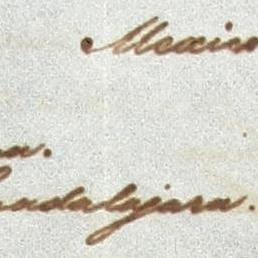 Mexico
na.
Guadalajara.